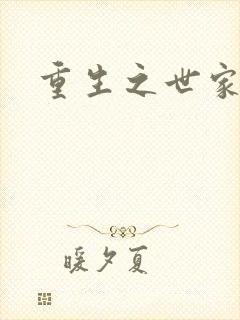 重生之世家
暖夕夏